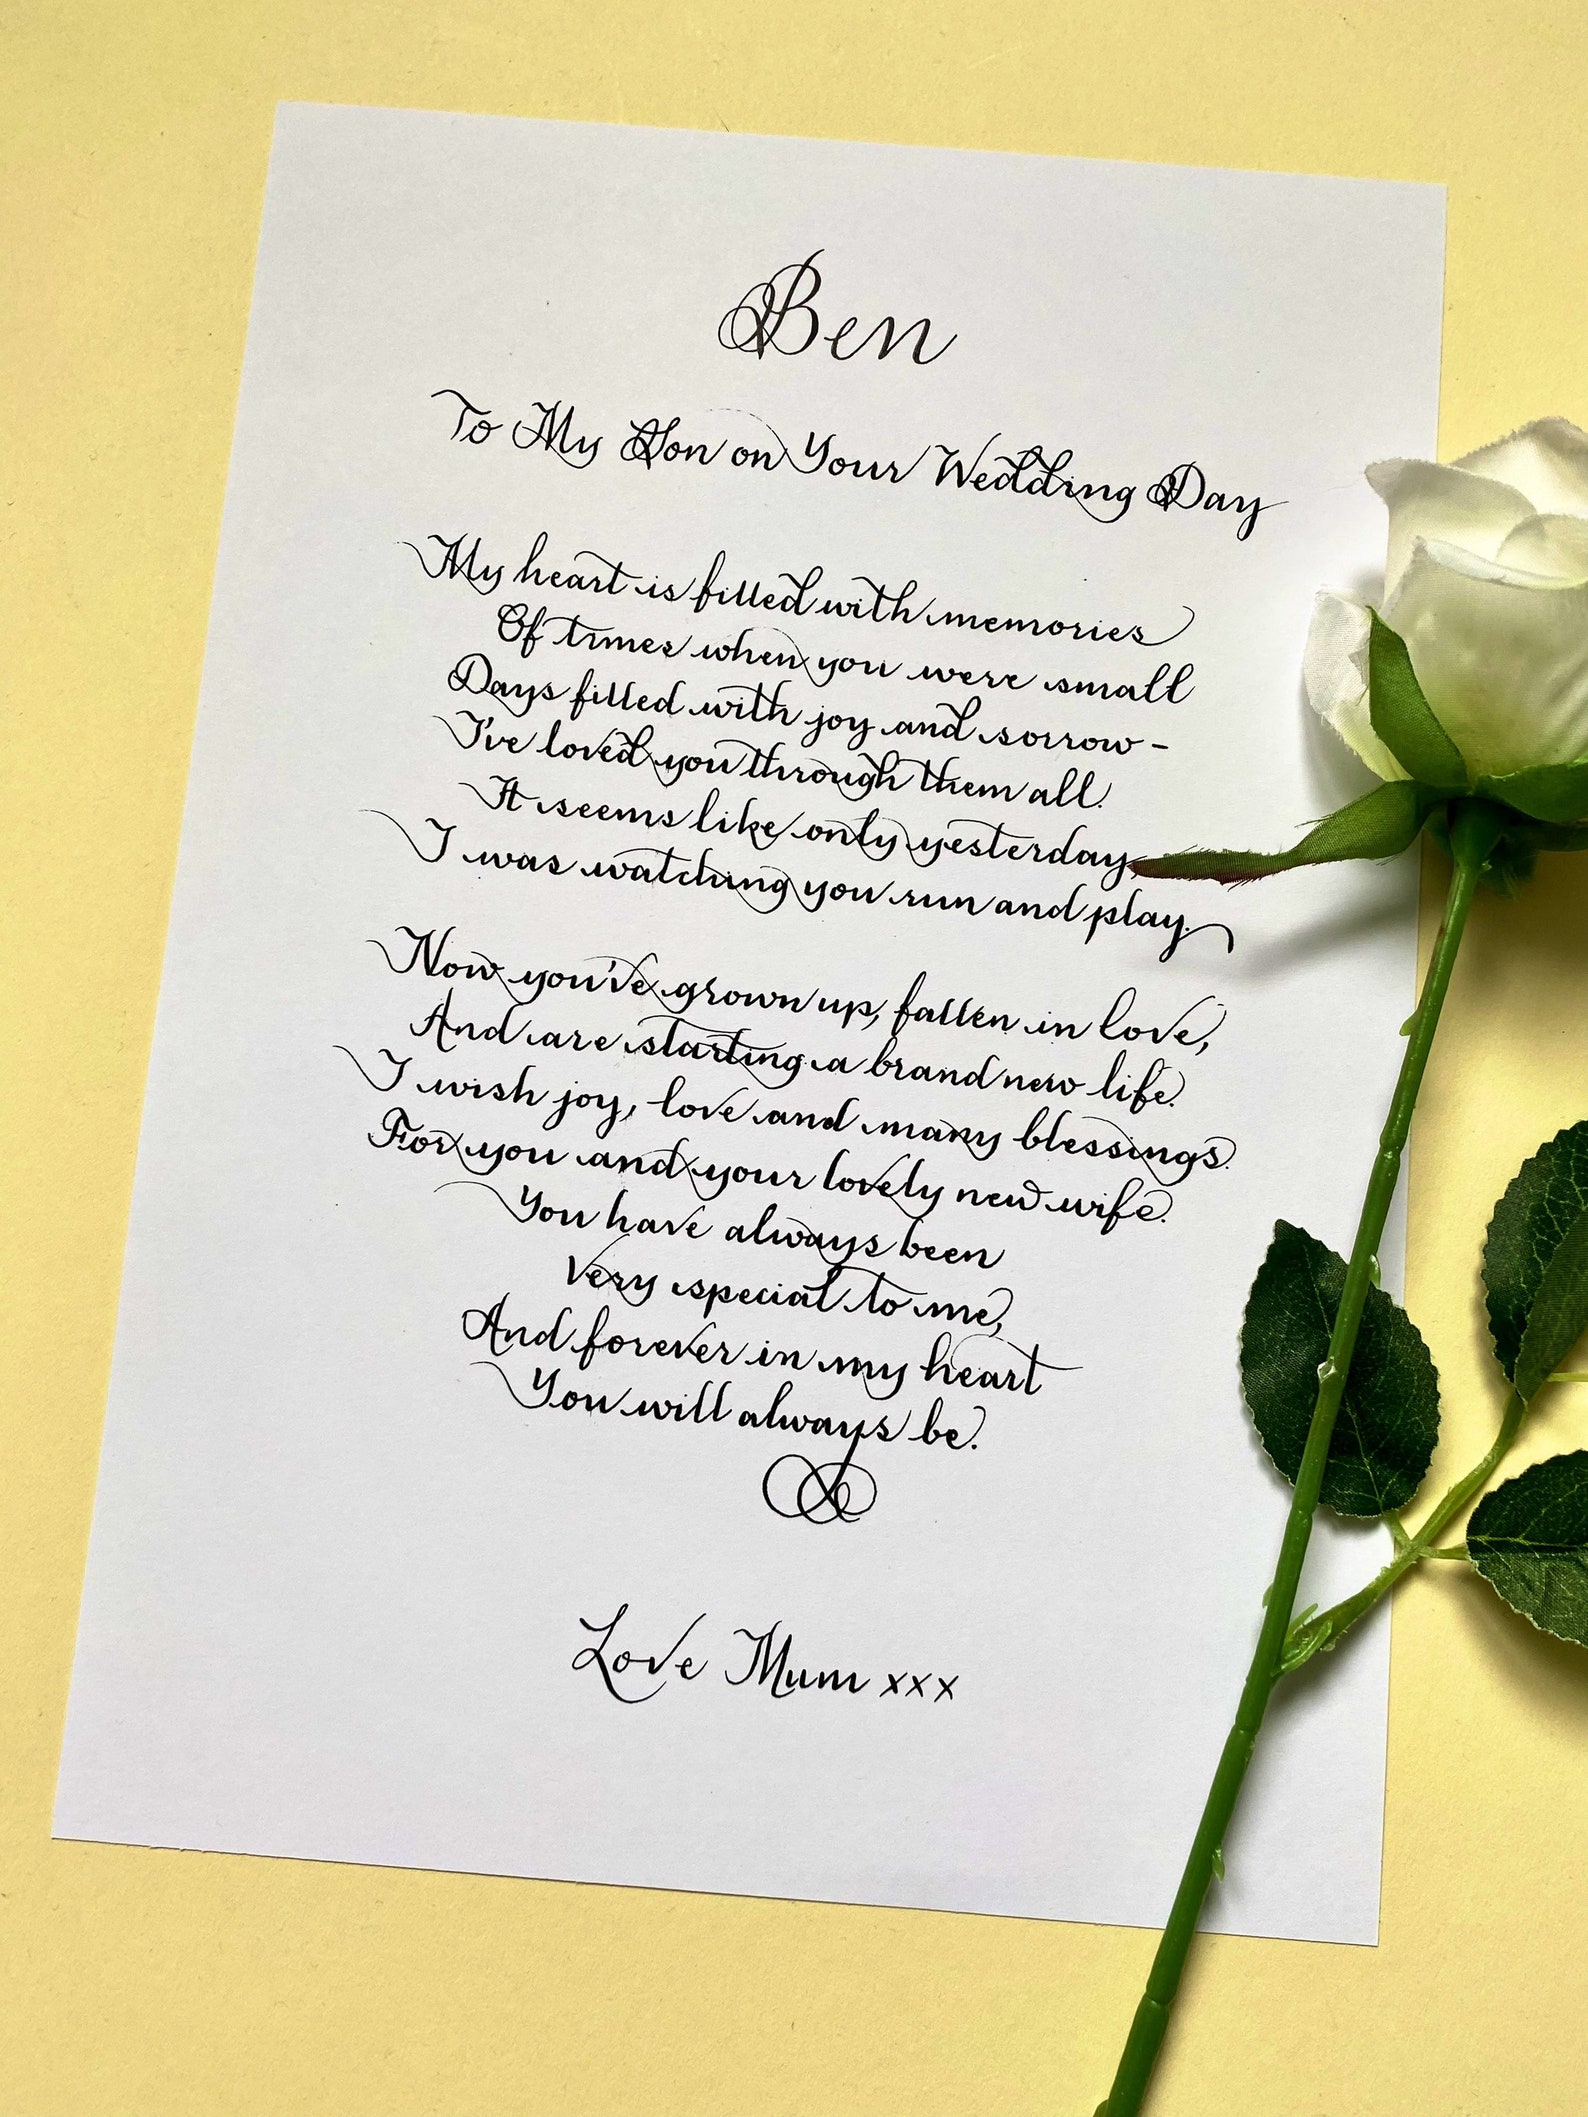 Ben
To My Son on Your Wedding Day
My heart is filled with memories
Of times when you were small
Days filled with joy and sorrow -
I've loved you through them all.
It seems like only yesterday,
I was watching you run and play.
Now you've grown up, fallen in love,
And are starting a brand new life.
I wish joy, love and many blessings.
For you and your lovely new wife.
You have always been
Very special to me,
And forever in my heart
You will always be.
Love Mum xxx